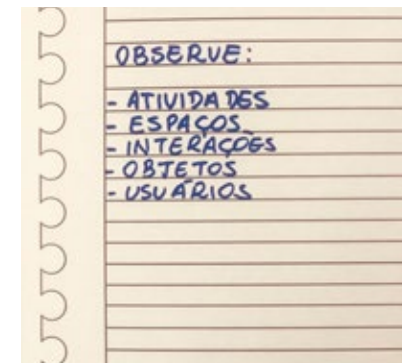 OBSERVE:
- ATIVIDADES
- ESPAÇOS
- INTERAÇÕES
- OBJETOS
- USUÁRIOS